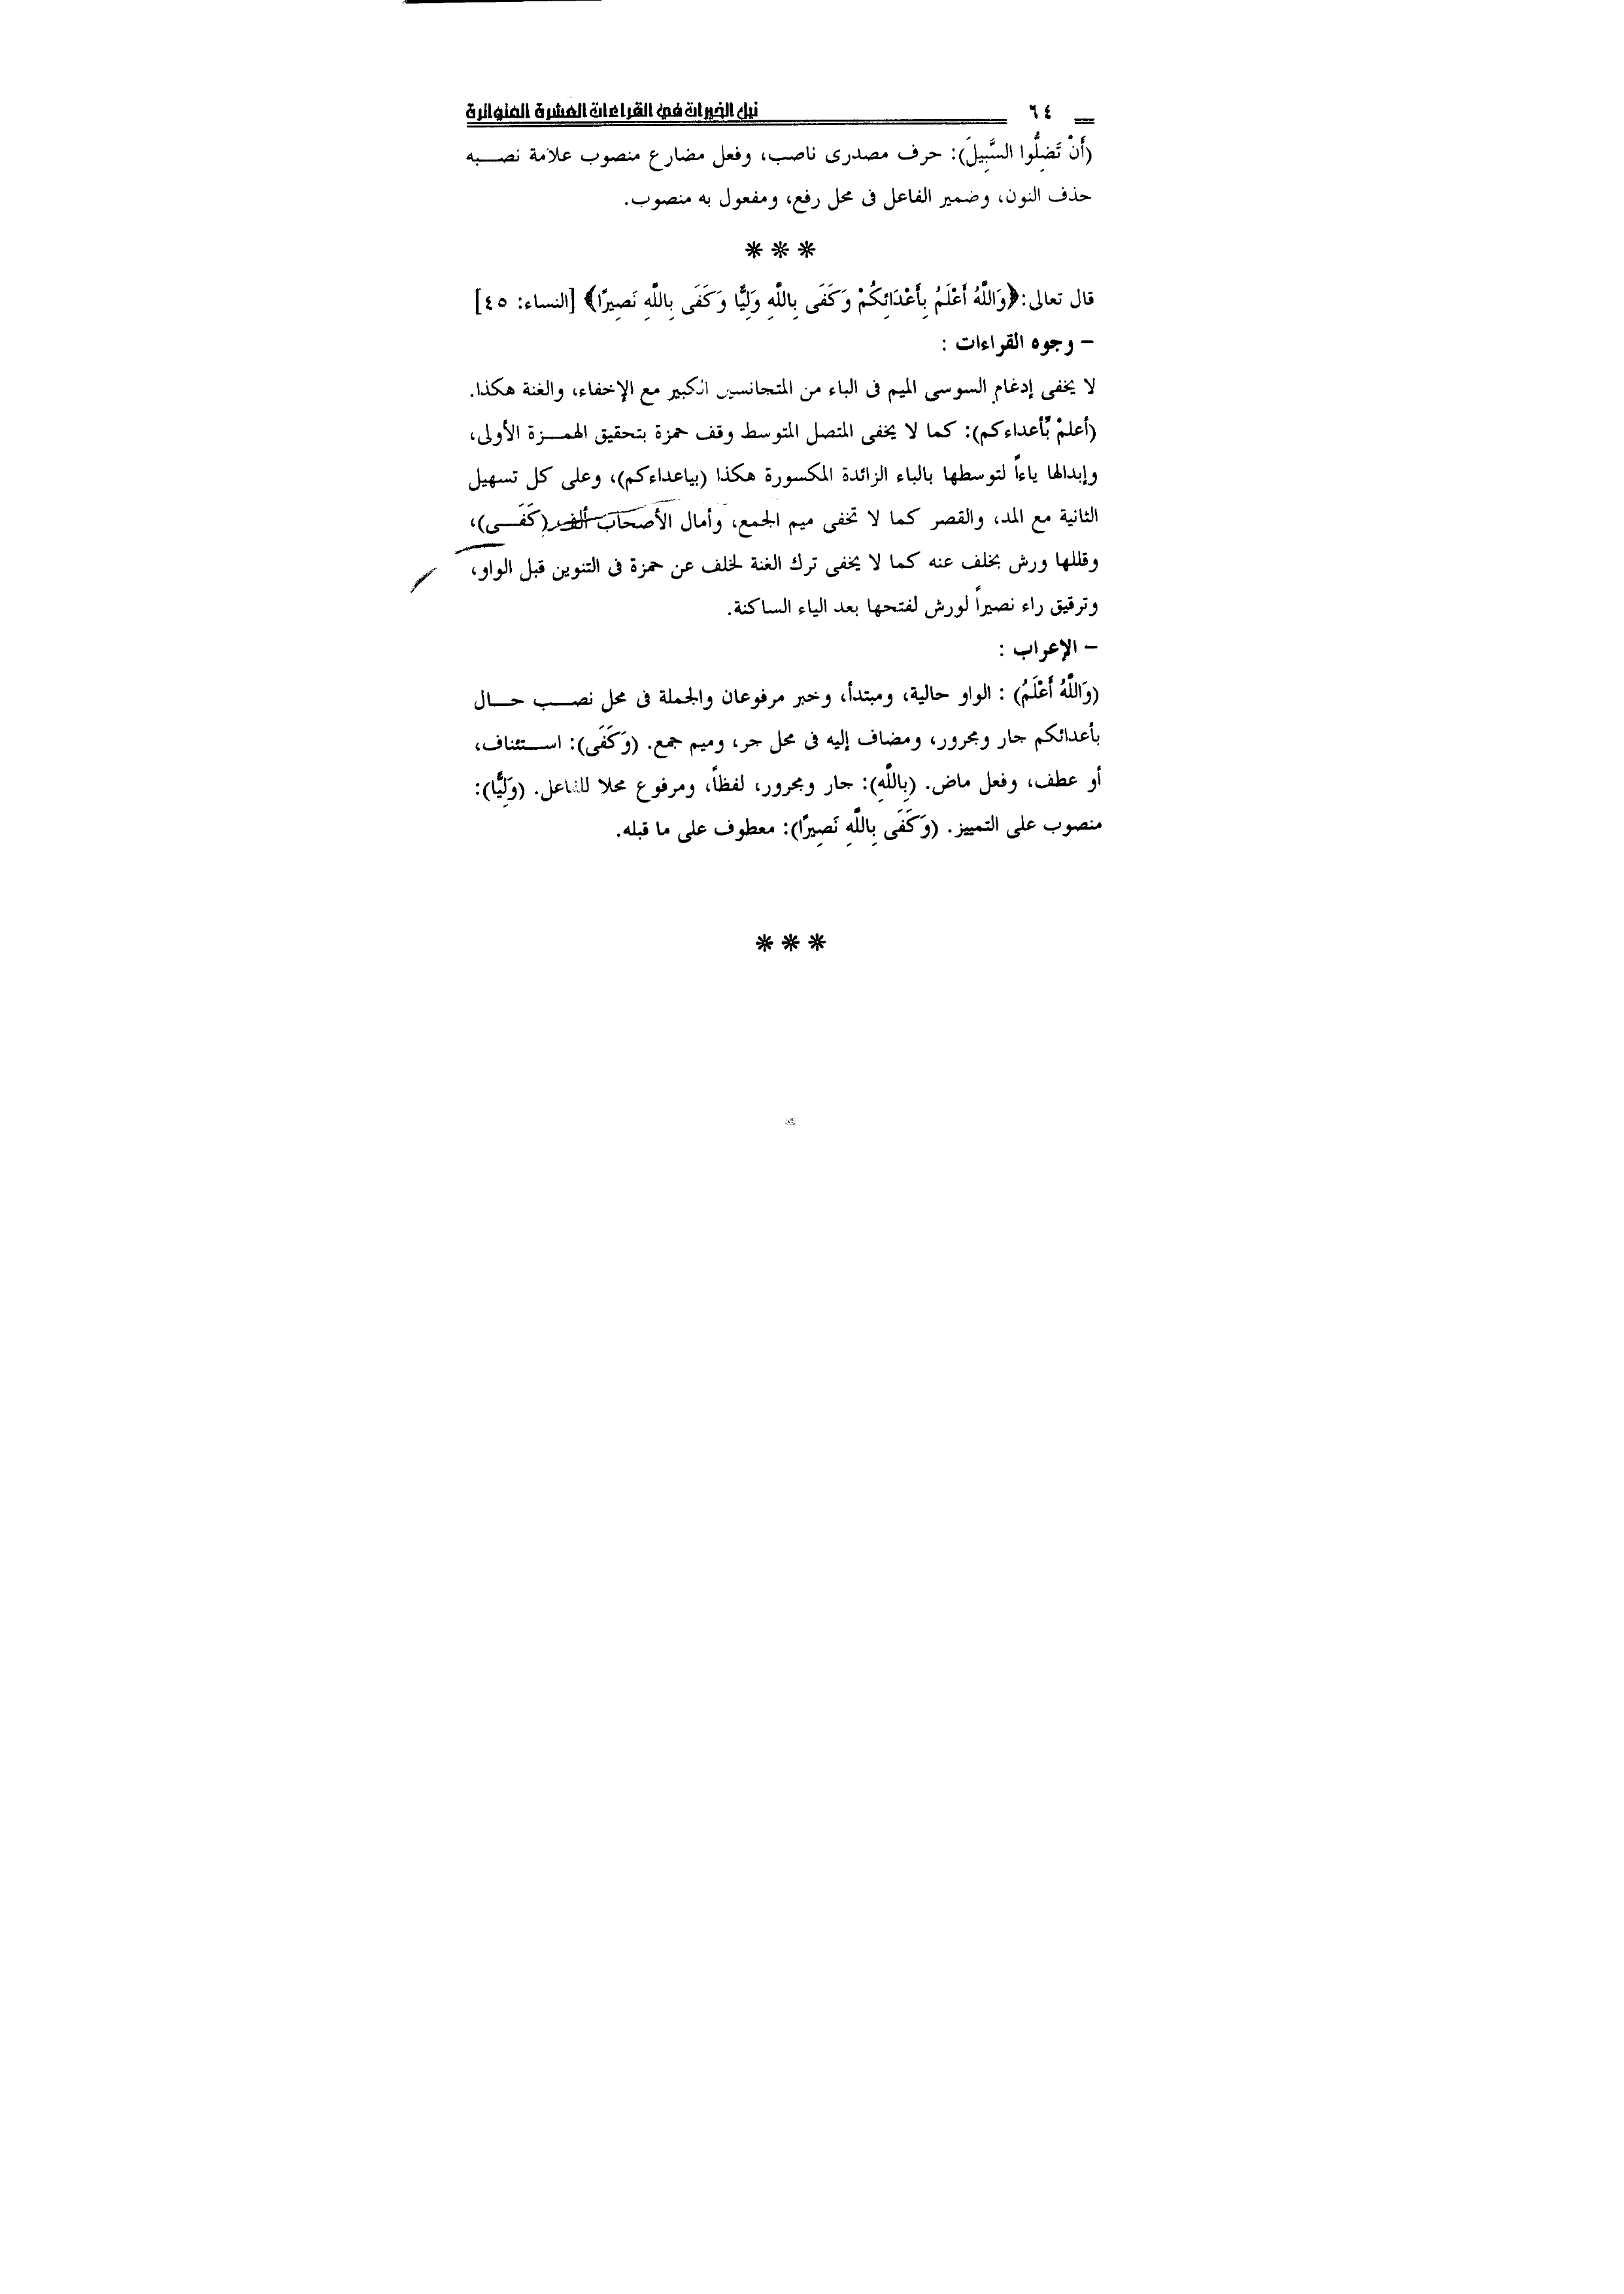 ٦٤ نيل الخيرات في القراءات العشرة المتواترة
(أَنْ تَضِلُّوا السَّبِيلَ): حرف مصدرى ناصب، وفعل مضارع منصوب علامة نصـــبه
حذف النون، وضمير الفاعل فى محل رفع، ومفعول به منصوب.
* * *
قال تعالى: ﴿وَاللَّهُ أَعْلَمُ بِأَعْدَائِكُمْ وَكَفَى بِاللَّهِ وَلِيًّا وَكَفَى بِاللَّهِ نَصِيرًا﴾ [النساء: ٤٥]
– وجوه القراءات :
لا يخفى إدغام السوسى الميم فى الباء من المتجانسين الكبير مع الإخفاء، والغنة هكذا.
(أعلمْ بِّأعداءكم): كما لا يخفى المتصل المتوسط وقف حمزة بتحقيق الهمـــزة الأولى،
وإبدالها ياءاً لتوسطها بالباء الزائدة المكسورة هكذا (بياعداءكم)، وعلى كل تسهيل
الثانية مع المد، والقصر كما لا تخفى ميم الجمع، وأمال الأصحاب ألف (كَفَـــى)،
وقللها ورش بخلف عنه كما لا يخفى ترك الغنة لخلف عن حمزة فى التنوين قبل الواو،
وترقيق راء نصيراً لورش لفتحها بعد الياء الساكنة.
– الإعراب :
(وَاللَّهُ أَعْلَمُ) : الواو حالية، ومبتدأ، وخبر مرفوعان والجملة فى محل نصـــب حـــال
بأعدائكم جار ومجرور، ومضاف إليه فى محل جر، وميم جمع. (وَكَفَى): استـــئناف،
أو عطف، وفعل ماض. (بِاللَّهِ): جار ومجرور، لفظاً، ومرفوع محلا للفاعل. (وَلِيًّا):
منصوب على التمييز. (وَكَفَى بِاللَّهِ نَصِيرًا): معطوف على ما قبله.
* * *